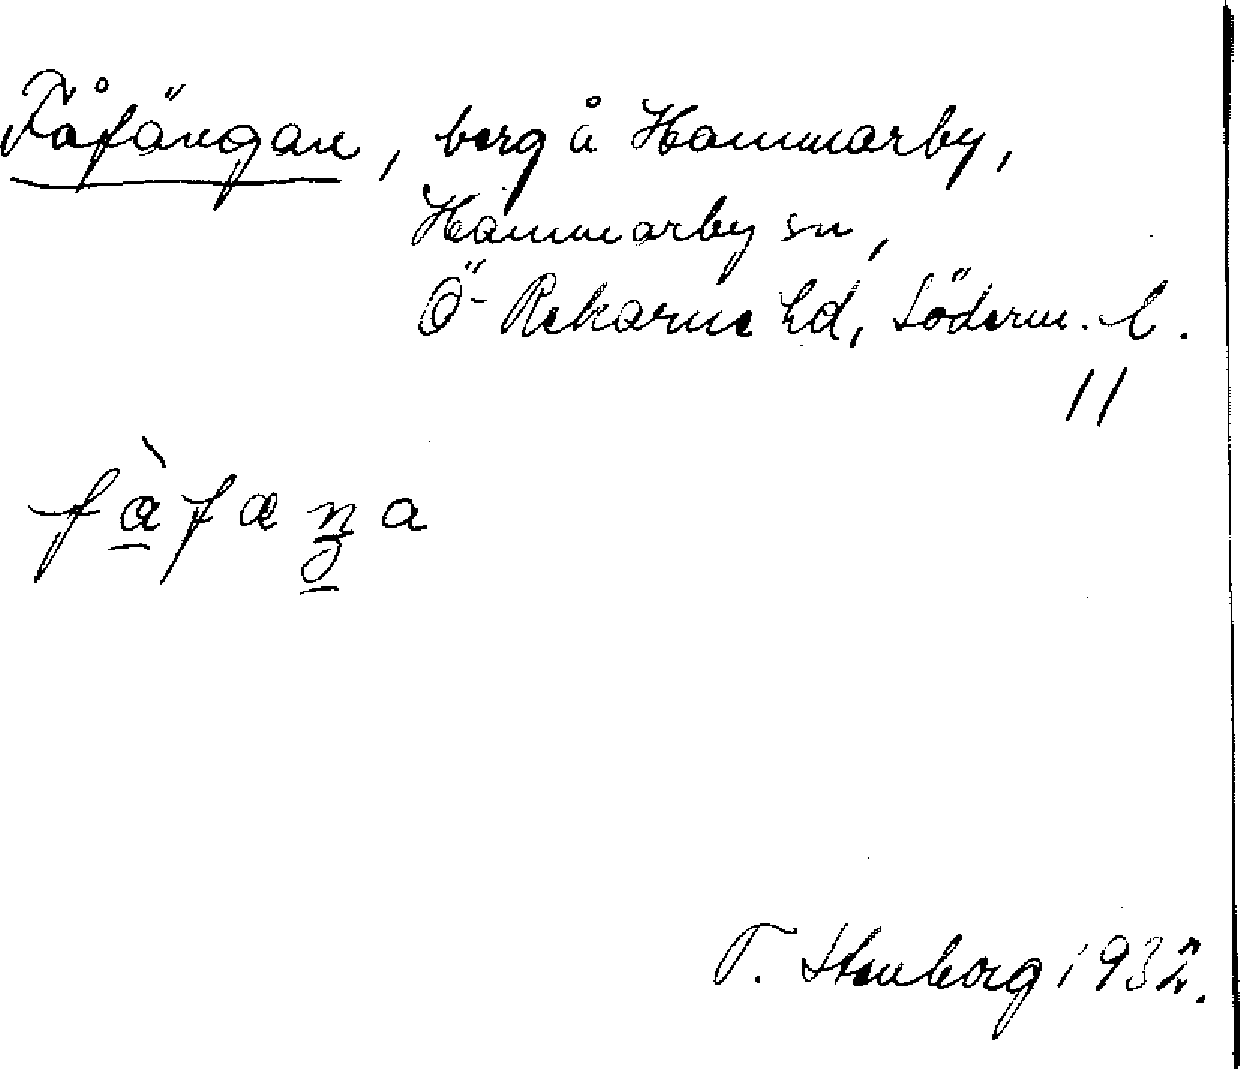 Fåfängan, berg å Hammarby,
Hammarby sn,
Ö- Rekarne hd, Söderm. l.
11
fàfæŋa
T. Stenborg 1932.